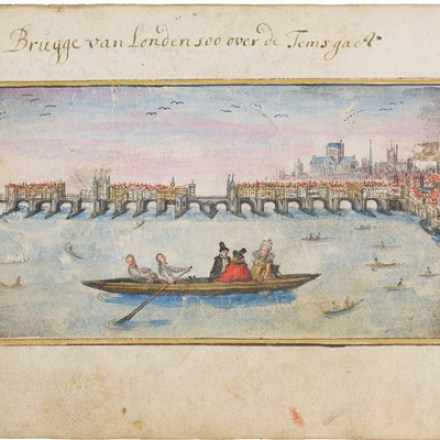 Brugge van Londen soo over de Tems gaet